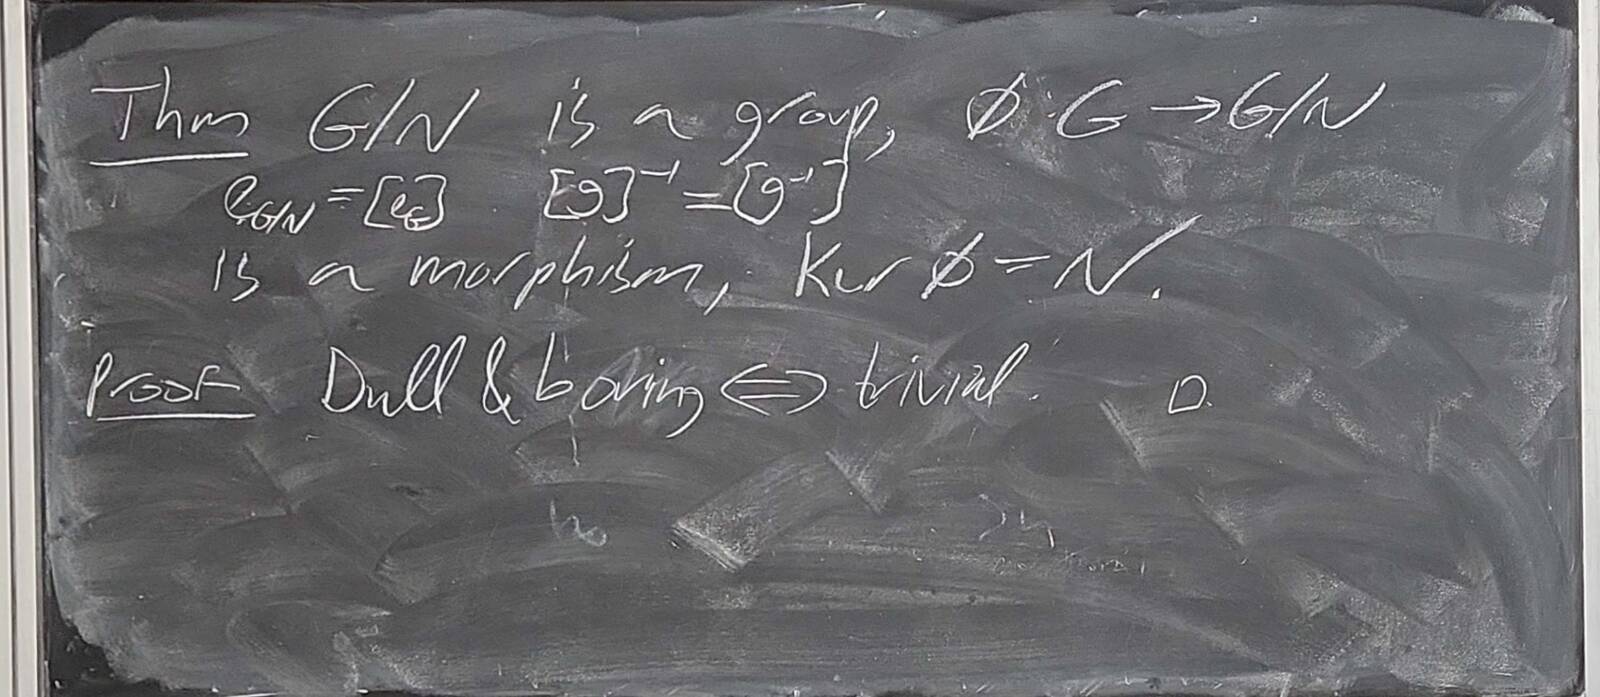 Thm G/N is a group, ϕ: G → G/N
e_{G/N} = [e_G] [g]^{-1} = [g^{-1}]
is a morphism, Ker ϕ = N.
Proof Dull & boring ⇔ trivial. □.